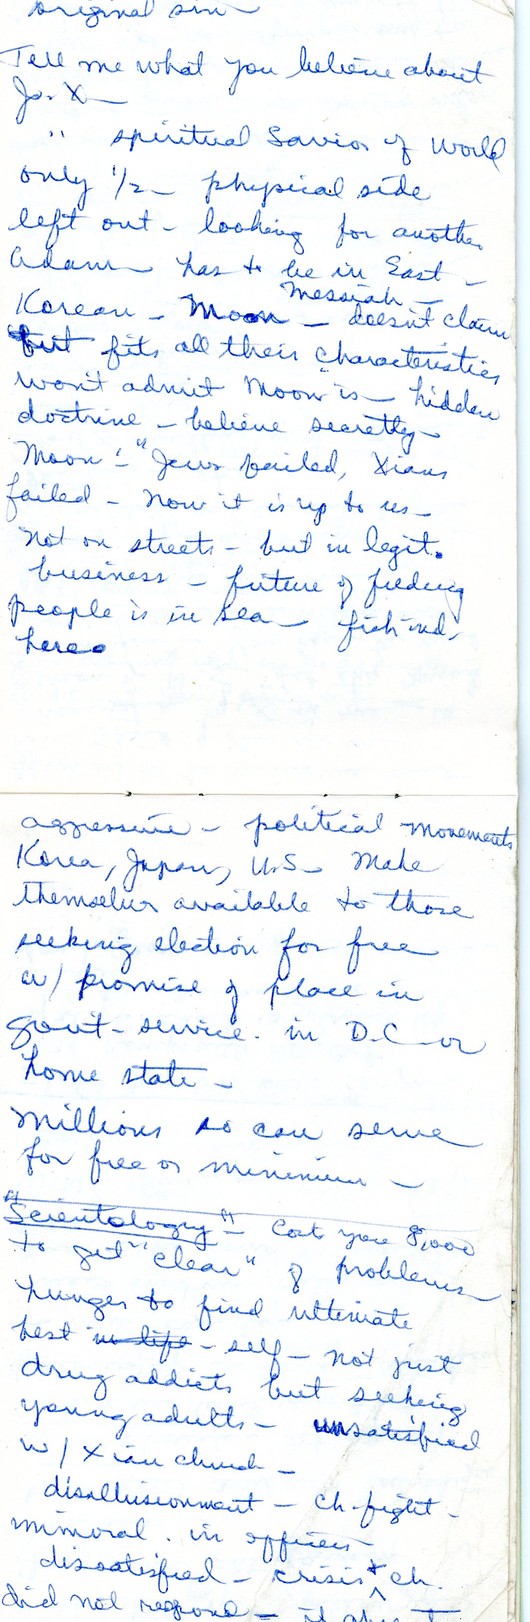 original sin
Tell me what you believe about
Js. X
" spiritual Savior of World
only 1/2 - physical side
left out - looking for another
Adam has to be in East -
Messiah -
Korean - Moon - doesn't claim
but fits all their characteristics
won't admit Moon is - hidden
doctrine - believe secretly -
Moon - "Jews failed, Xians
failed - now it is up to us -
Not on streets - but in legit.
business - future of feeding
people is in sea - fish ind.
here.
aggressive - political movements
Korea, Japan, U.S. Make
themselves available to those
seeking election for free
w/ promise of place in
gov't - service. in D.C. or
home state -
Millions so can serve
for free or minimum -
"Scientology" - Cost you 8,000
to get "clear" of problems
hunger to find ultimate
best in life - self - not just
drug addicts but seeking
young adults - unsatisfied
w/ Xian church -
disillusionment - ch. fight -
immoral. in offices
dissatisfied - crisis & ch.
did not respond -